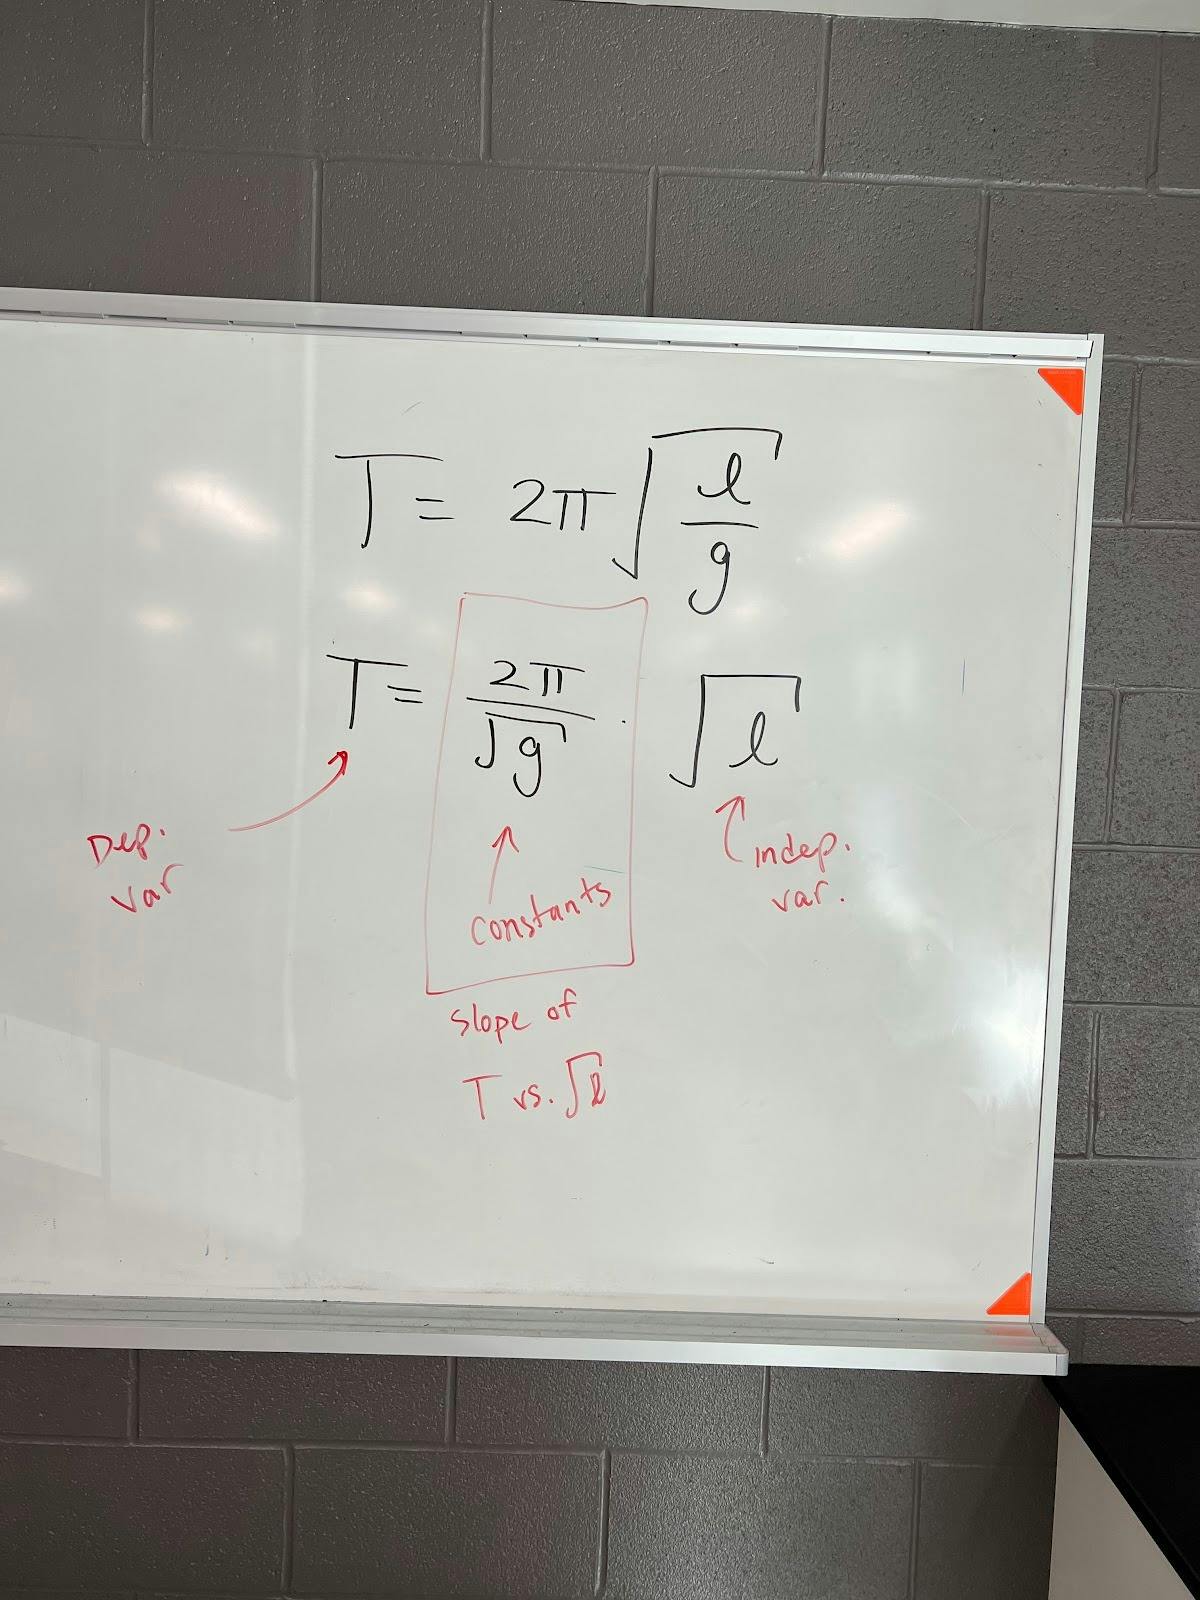 T = 2π√(l/g)
T = 2π/√g · √l
Dep.
var
constants
indep.
var.
slope of
T vs. √l